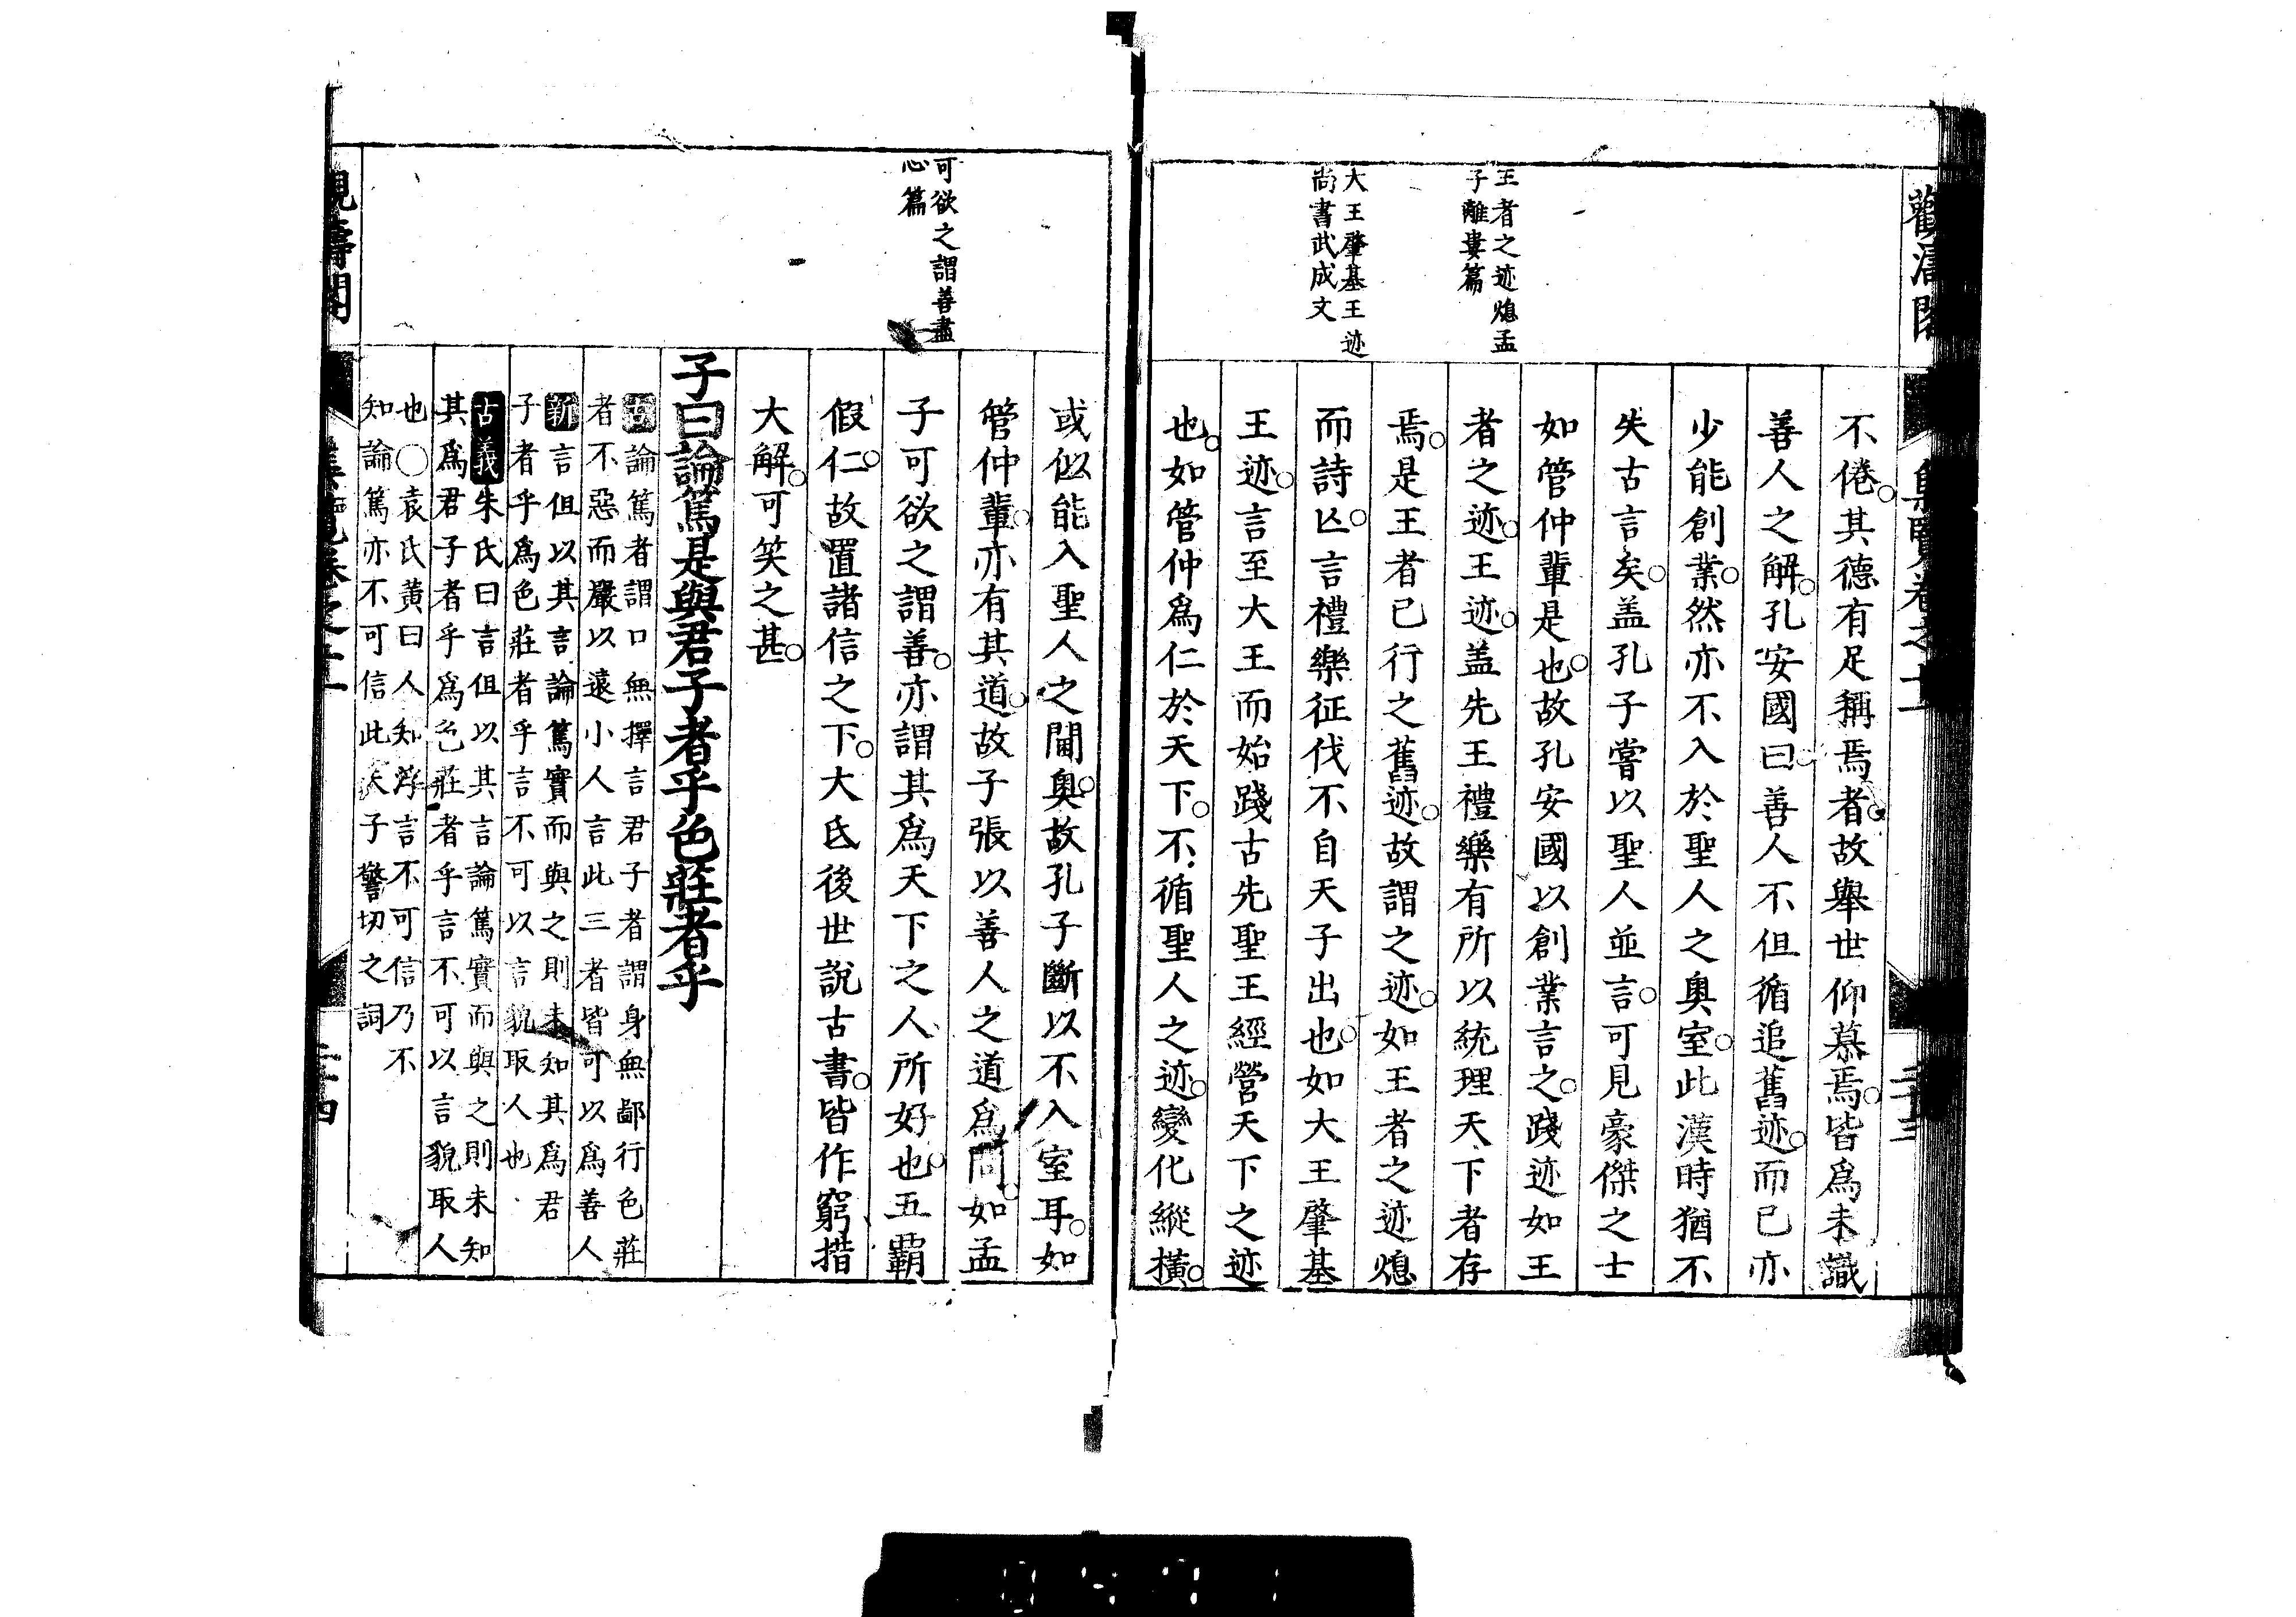 王者之迹熄孟
子離婁篇
大王肇基王迹
尚書武成文
不倦其德有足稱焉者故舉世仰慕焉皆爲未識
善人之解孔安國曰善人不但循追舊迹而已亦
少能創業然亦不入於聖人之奧室此漢時猶不
失古言矣盖孔子嘗以聖人並言可見豪傑之士
如管仲輩是也故孔安國以創業言之踐迹如王
者之迹王迹盖先王禮樂有所以統理天下者存
焉是王者已行之舊迹故謂之迹如王者之迹熄
而詩亾言禮樂征伐不自天子出也如大王肇基
王迹言至大王而始踐古先聖王經營天下之迹
也如管仲爲仁於天下不循聖人之迹變化縱橫
可欲之謂善盡
心篇
或似能入聖人之閫奧故孔子斷以不入室耳如
管仲輩亦有其道故子張以善人之道爲問如孟
子可欲之謂善亦謂其爲天下之人所好也五霸
假仁故置諸信之下大氐後世說古書皆作窮措
大解可笑之甚
子曰論篤是與君子者乎色莊者乎
古論篤者謂口無擇言君子者謂身無鄙行色莊
者不惡而嚴以遠小人言此三者皆可以爲善人
新言但以其言論篤實而與之則未知其爲君
子者乎爲色莊者乎言不可以言貌取人也
古義朱氏曰言但以其言論篤實而與之則未知
其爲君子者乎爲色莊者乎言不可以言貌取人
也○袁氏黃曰人知浮言不可信乃不
知論篤亦不可信此夫子警切之詞